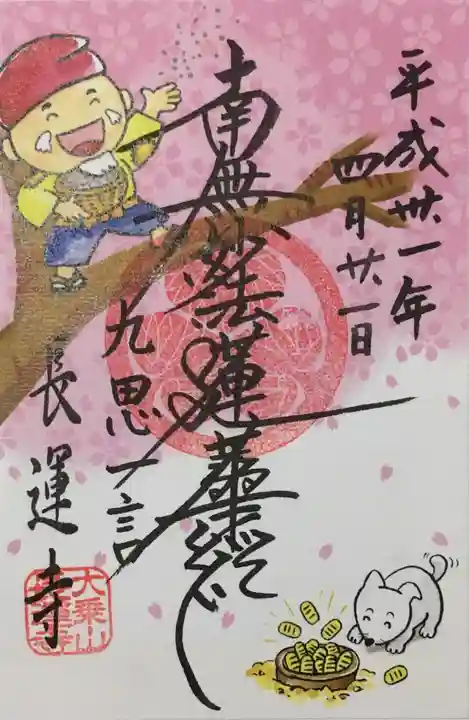 平成卅一年
四月廿一日
南無妙法蓮華経
九思一言
長運寺
大乗山
長運寺